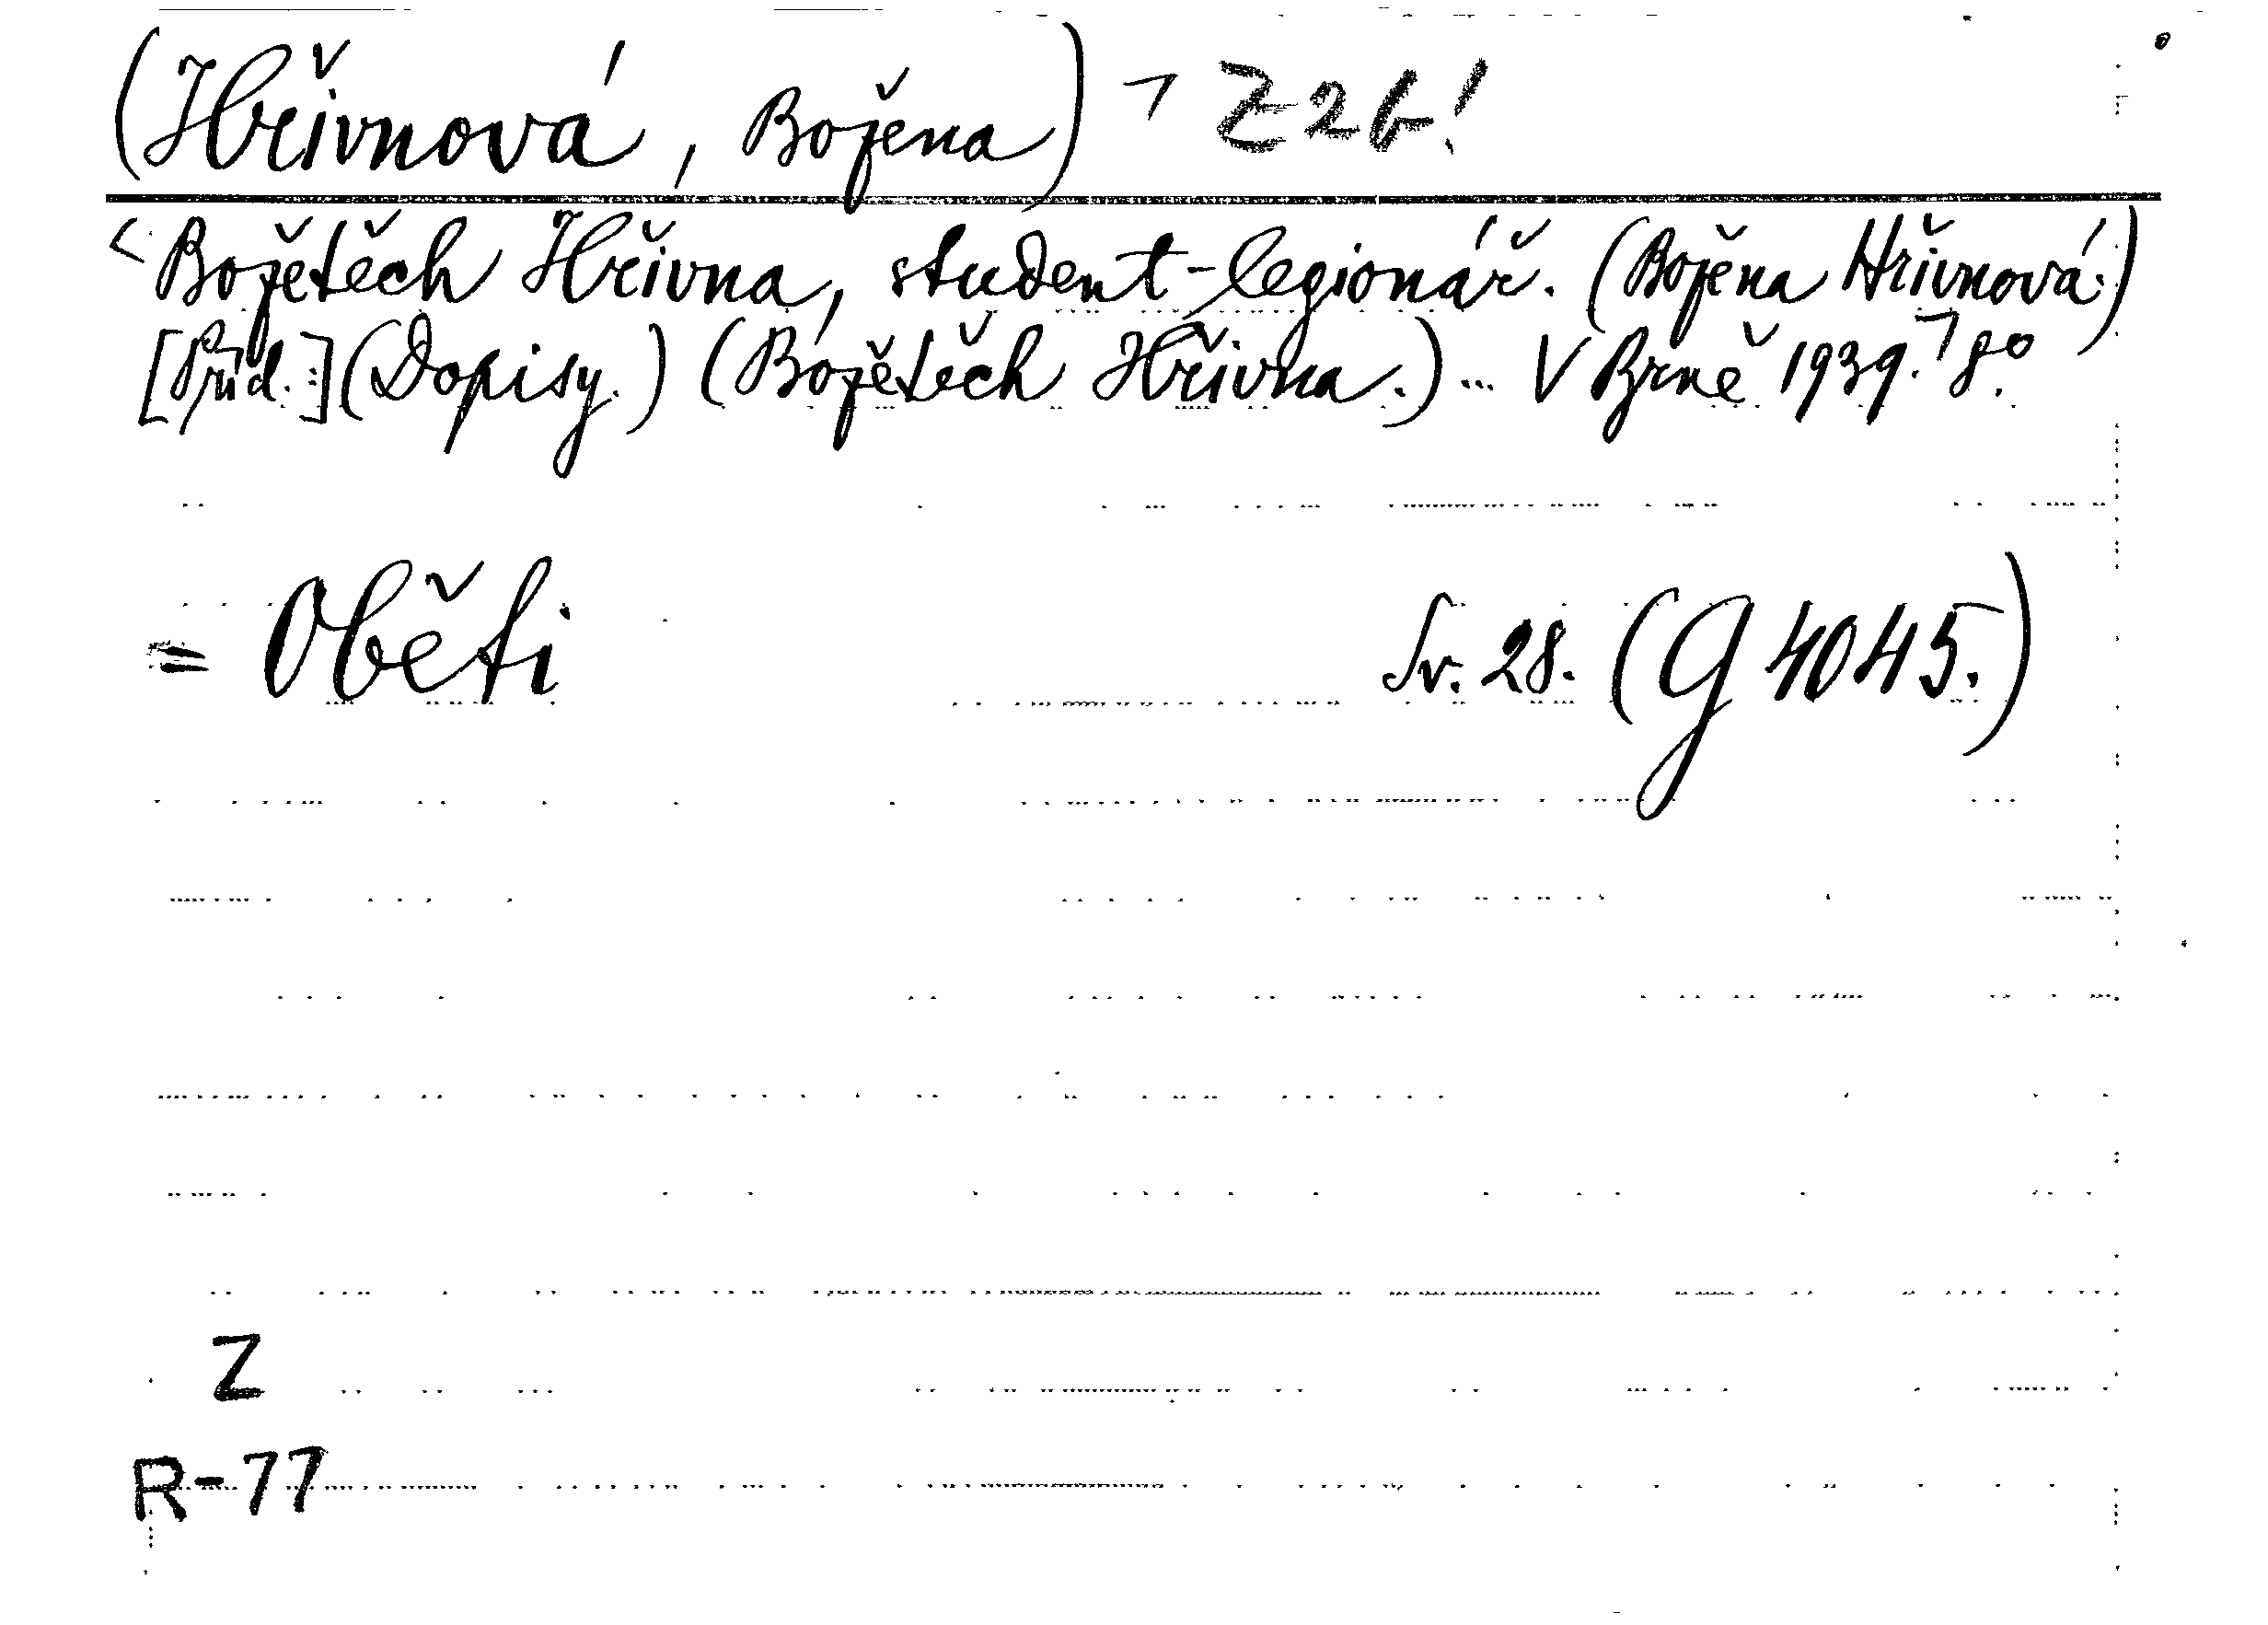 (Hřivnová, Božena) ¬ Z2b!
<Božetěch Hřivna, student-legionář. (Božena Hřivnová.)
[Příd.:] (Dopisy.) (Božetěch Hřivna.) ... V Brně 1939. 8°
= Oběti Sv. 28. (G 4045.)
Z
R-77